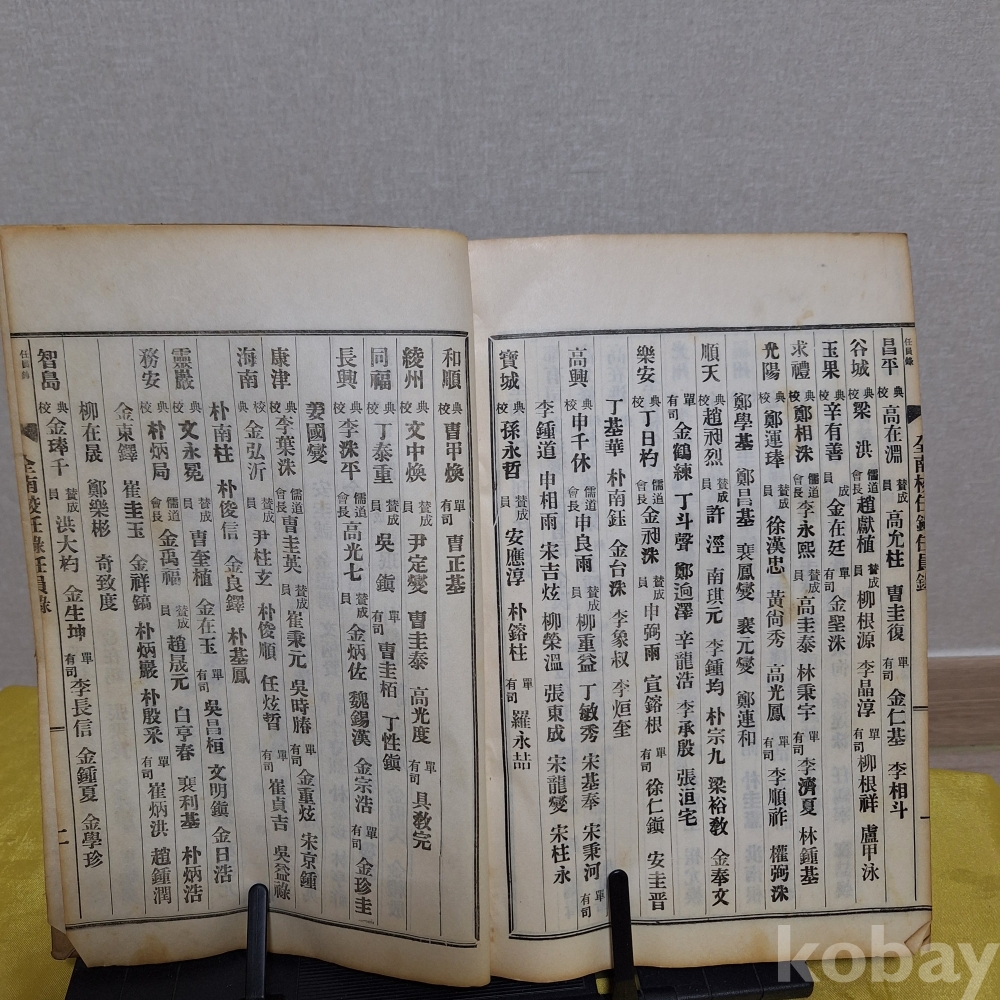 任員錄
昌平 典校 高在淵 贊成員 高允柱 曺圭復 單有司 金仁基 李相斗
谷城 典校 梁洪 儒道會長 趙獻植 贊成員 柳根源 李晶淳 單有司 柳根祥 盧甲泳
玉果 典校 辛有善 成員 金在廷 單有司 金聖洙
求禮 典校 鄭相洙 儒道會長 李永熙 贊成員 高圭泰 林秉宇 單有司 李濟夏 林鍾基
光陽 典校 鄭運琫 贊成員 徐漢忠 黃尙秀 高光鳳 單有司 李順祚 權弼洙
鄭學基 鄭昌基 裵鳳燮 裵元燮 鄭連和
順天 典校 趙昶烈 贊成員 許涇 南琪元 李鍾均 朴宗九 梁裕敎 金奉文
單有司 金鶴練 丁斗聲 鄭逈澤 辛龍浩 李承殷 張洹宅
樂安 典校 丁日杓 儒道會長 金昶洙 贊成員 申弼雨 宣鎔根 單有司 徐仁鎭 安圭晋
丁基華 朴南鈺 金台洙 李象叔 李烜奎
高興 典校 申千休 儒道會長 申良雨 贊成員 柳重益 丁敏秀 宋基奉 宋秉河 單有司
李鍾道 申相雨 宋吉炫 柳榮溫 張東成 宋龍燮 宋柱永
寶城 典校 孫永哲 贊成員 安應淳 朴鎔柱 單有司 羅永喆
和順 典校 曺秉煥 單有司 曺正基
綾州 典校 文中煥 贊成員 尹定燮 曺圭泰 高光度 單有司 具敎完
同福 典校 丁泰重 贊成員 吳鎭 單有司 曺圭栢 丁性鎭
長興 典校 李洙平 儒道會長 高光七 贊成員 金炳佐 魏錫漢 金宗浩 單有司 金珍圭
姜國燮
康津 典校 李葉洙 儒道會長 曺圭英 贊成員 崔秉元 吳時膞 單有司 金重炫 宋京鍾
海南 典校 金弘沂 贊成員 尹柱玄 朴俊順 任炫晢 單有司 崔貞吉 吳益祿
朴南柱 朴俊信 金良鐸 朴基鳳
靈巖 典校 文永冕 儒道會長 曺奎植 金在玉 吳昌桓 文明鎭 金日浩
務安 典校 朴炳局 贊成員 金禹福 贊成員 趙晟元 白亨春 裵利基 朴炳浩
金東鐸 崔圭玉 金祥鎬 朴炳巖 朴殷采 單有司 崔炳洪 趙鍾潤
柳在晟 鄭樂彬 奇致度
智島 典校 金琫千 贊成員 洪大杓 金生坤 單有司 李長信 金鍾夏 金學珍
任員錄
二
kobay